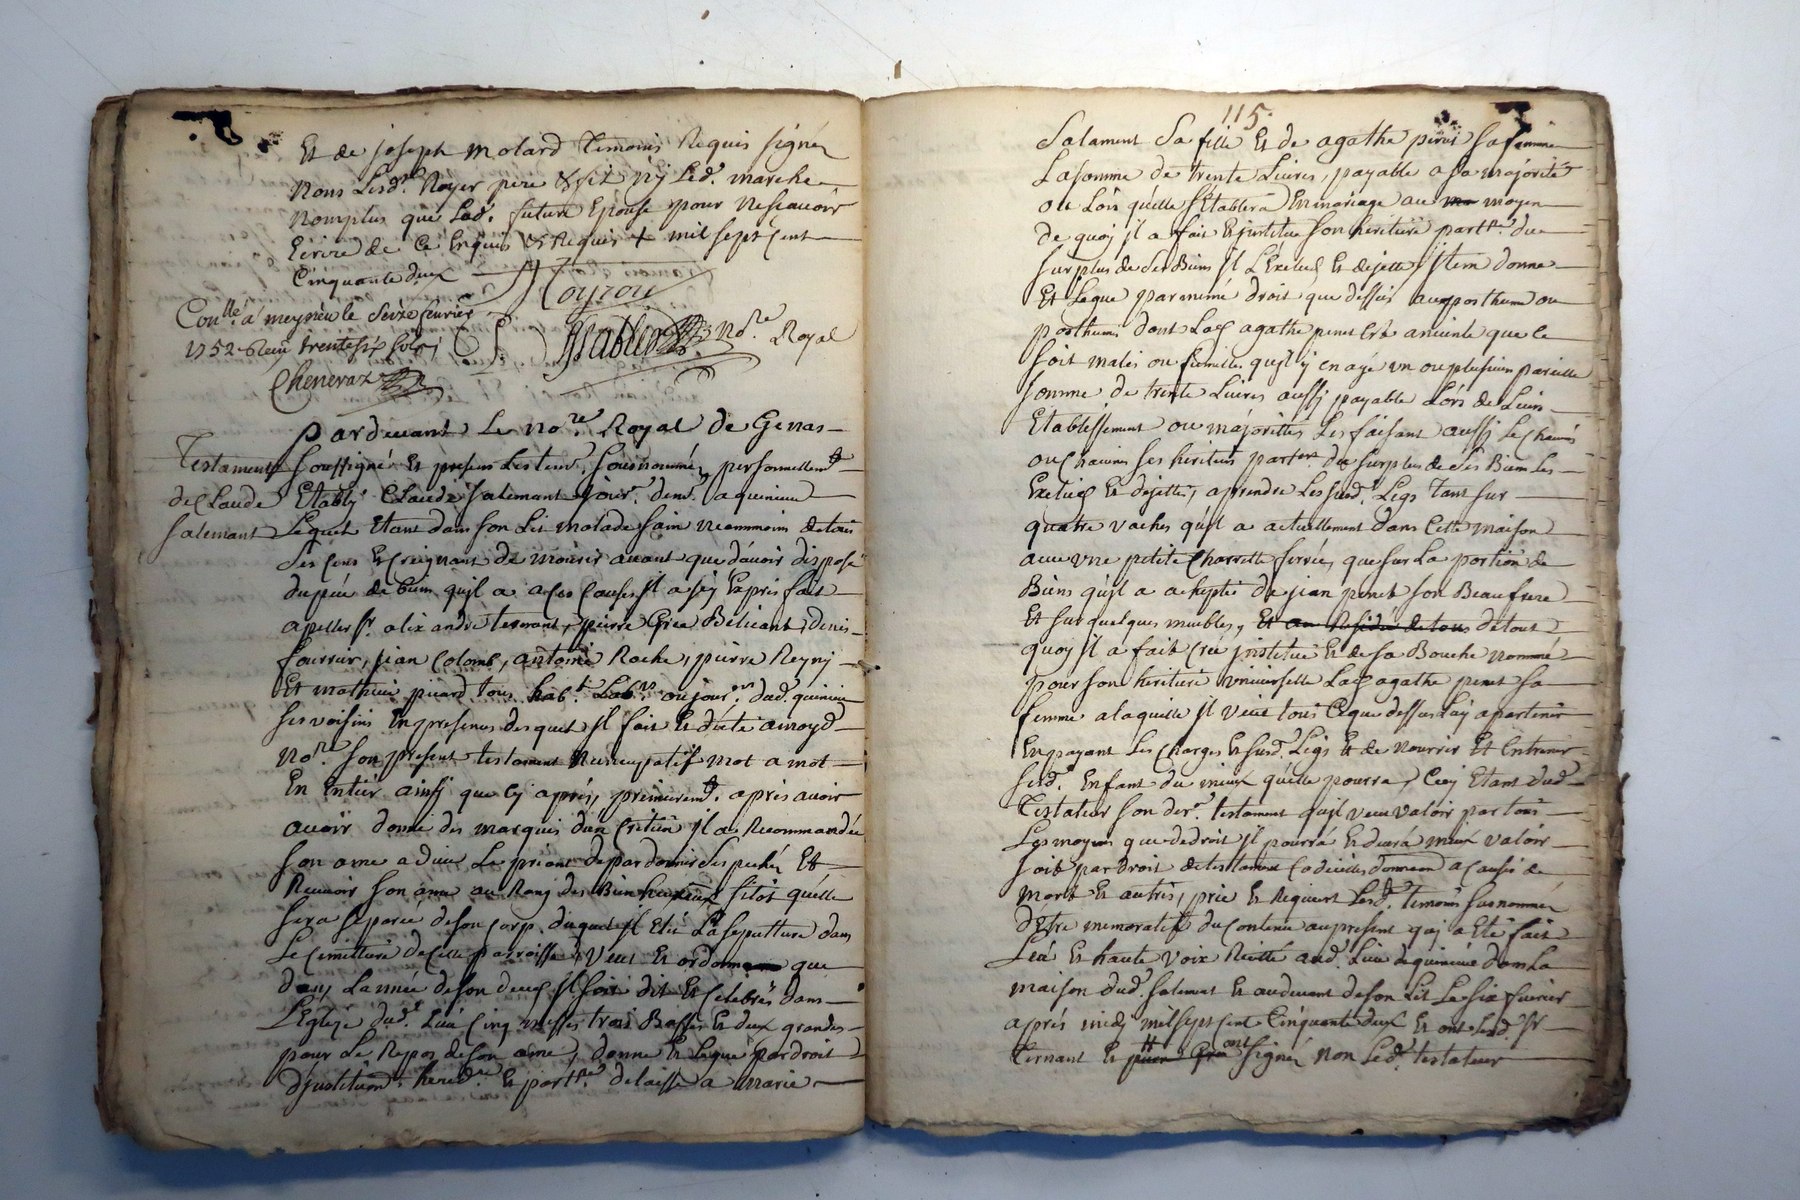 Et de joseph molard temoins Requis signéz
nous Lesd. Royer pere & fils ny Led. marche
nomplus que Lad. future Epouse pour ne scavoir
Ecrire de ce Enquis & Requis + mil sept cent
Cinquante deux
Coyrou
Conllé a meyrieu le seize feurier
1752 Receu trente six sols
Chenevaz
Sablier No.re Royal
pardeuant Le no.re Royal de Genas
Testament
de Claude
salemant
soussigné Et presens Les tesm. sousnommez personnellem.t
Etably Claude salemant jour.r dem.t a quinieu
Lequel Etant dans son Lit malade sain neammoins de tous
ses sens Et creignant de mourir auant que d'auoir disposé
du peu de bien qu'jl a a ces causes jl a icy Expres fait
apeller s.r alixandre teernant, pierre Gréa Bélicant, denis
fourrier, jean Colomb, antoine Roche, pierre Reynj
Et mathieu picard tous hab.t Lab.rs ou jour.ers dud. quinieu
ses voisins En presence desquels jl fait & dicte a moyd.
No.re son present testament Nuncupatif mot a mot
En Entier ainsj que cy aprés, premierem.t apres auoir
auoir donné des marques d'un Crétien jl a Recommandée
son ame a dieu Le priant de pardonner ses pechéz Et
Receuoir son ame au Rang des Bienheureux sitot qu'elle
sera separée de son corp duquel jl Elit La sepulture dans
Le cimittiere de cette parroisse, veut Et ordonne que
dans L'année de son decez jl soit dit & celebrés dans
L'Eglise dud. Lieu Cinq messes trois Basses & deux grandes
pour Le Repos de son ame, donne & Legue par droit
d'jnstitution hered.re & part.re delaisse a marie
115.
Salament sa fille Et de agathe pinet sa femme
La somme de trente Livres, payable a sa majorité
ou Lors qu'elle s'Etablera En mariage au moyen
de quoj jl a fait & jnstitue son heritiere part.re du
surplus de ses Biens jl L'Exclud & dejette, jtem donne
Et Legue par mémé droit que dessus au posthume ou
posthumes dont Lad. agathe pinet Est anceinte que ce
soit males ou fumelles qu'jl y en aye un ou plusieurs pareille
somme de trente Livres aussj payable Lors de Leurs
Etablissement ou majorittés Les faisant aussj Le chacuns
ou chacunes ses heritiers part.ers du surplus de ses Biens Les
Exclud & dejette, a prendre Les susd. Legs tant sur
quatre vaches qu'jl a actuellement dans Cette maison
auec une petite charrette ferrée, que sur La portion de
Biens qu'jl a acheptée de jean pinet son Beau frere
Et sur quelques meubles, Et au Residu de tous de tout
quoy jl a fait Crée jnstitué & de sa Bouche nommé
pour son heritiere universelle Lad. agathe pinet sa
femme a laquelle jl veut tout Ce que dessus Luy apartenir
En payant Les charges & susd. Legs Et de nourrir Et Entrenir
sesd. Enfant du mieux qu'elle pourra, Cecy Etant dud.
Testateur son der.r testament qu'jl veut valoir par tous
Les moyens que de droit jl pourra & deura mieux valoir
soit par droit de testament codicilles donnaon a cause de
mort & autres, prie & Requiert Lesd. temoins surnommez
d'Etre memoratifs du Contenu au present qui a Eté fait
Leu & haute voix Recitté aud. Lieu de quinieu dans La
maison dud. salemant & au deuant de son Lit Le six feurier
aprés midj mil sept cent Cinquante deux & ont Lesd. s.r
ternant & signéz non Led. testateur